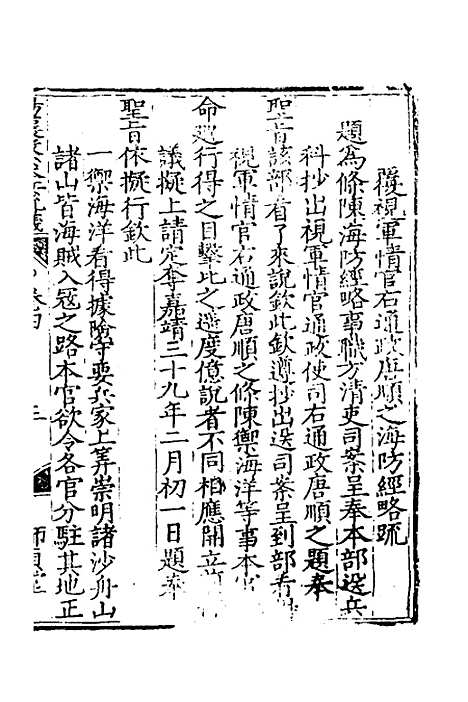 覆視軍情官右通政唐順之海防經略疏
題為條陳海防經略事職方清吏司案呈奉本部送兵
科抄出視軍情官通政使司右通政唐順之題奉
聖旨該部看了來說欽此欽遵抄出送司案呈到部看得
視軍情官右通政唐順之條陳禦海洋等事本官
命廵行得之目擊比之遥度億說者不同相應開立前
議擬上請定奪嘉靖三十九年二月初一日題奉
聖旨依擬行欽此
一禦海洋看得據險守要兵家上筭崇明諸沙舟山
諸山皆海賊入寇之路本官欲令各官分駐其地正
卷四
三